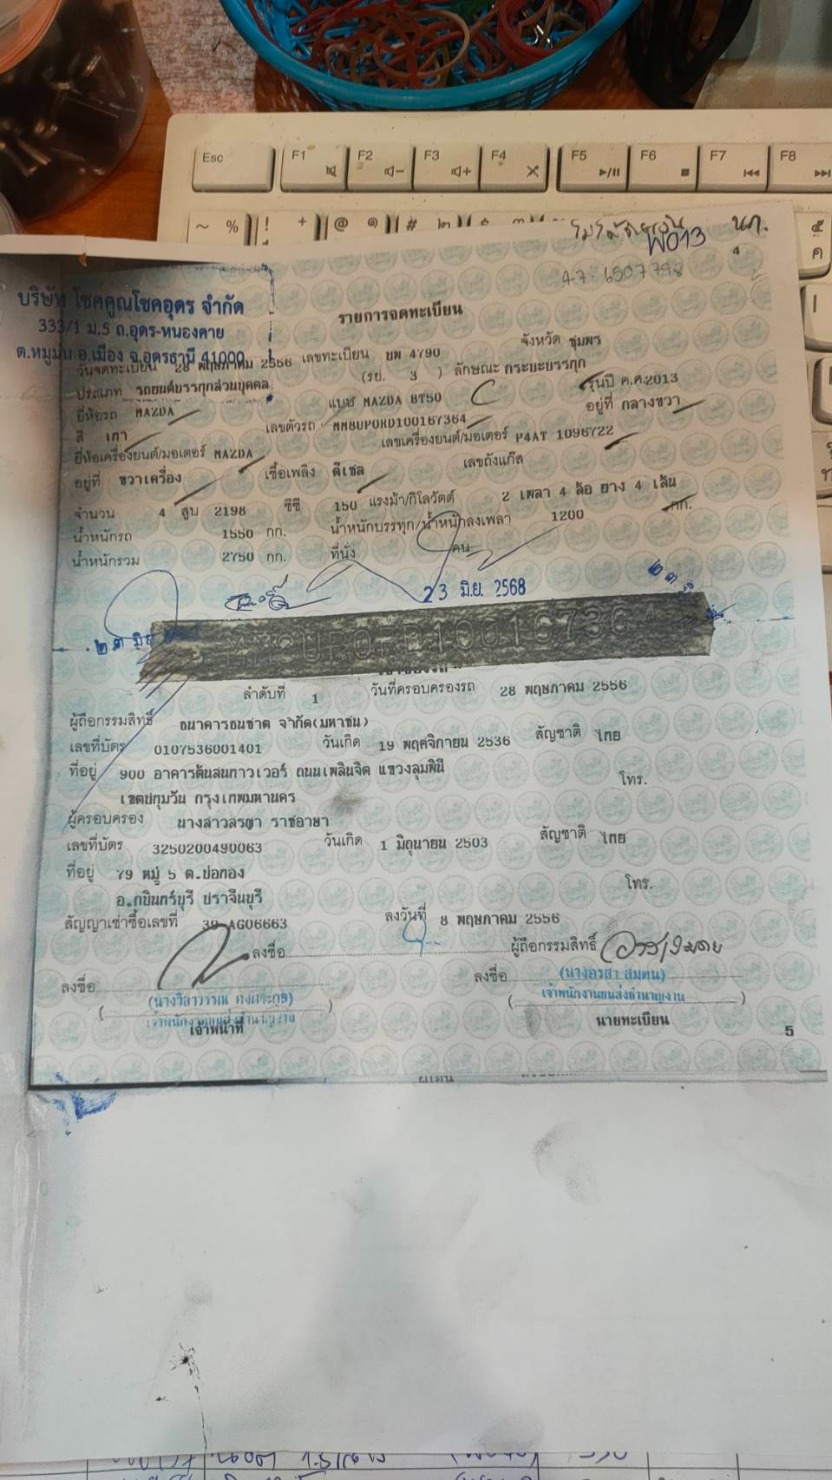 Esc F1 F2 F3 F4 F5 F6 F7 F8
W013 นภ.
4
A-7 6507798
บริษัท โชคคูณโชคอุดร จำกัด
333/1 ม.5 ถ.อุดร-หนองคาย
ต.หมูม่น อ.เมือง จ.อุดรธานี 41000
รายการจดทะเบียน
วันจดทะเบียน 28 พฤษภาคม 2556 เลขทะเบียน บพ 4790 จังหวัด ชุมพร
ประเภท รถยนต์บรรทุกส่วนบุคคล (รย. 3 ) ลักษณะ กระบะบรรทุก
ยี่ห้อรถ MAZDA แบบ MAZDA BT50 C รุ่นปี ค.ศ.2013
สี เทา เลขตัวรถ MM8UP0RD100167364 อยู่ที่ กลางขวา
ยี่ห้อเครื่องยนต์/มอเตอร์ MAZDA เลขเครื่องยนต์/มอเตอร์ P4AT 1096722
อยู่ที่ ขวาเครื่อง เชื้อเพลิง ดีเซล เลขถังแก๊ส
จำนวน 4 สูบ 2198 ซีซี 150 แรงม้า/กิโลวัตต์ 2 เพลา 4 ล้อ ยาง 4 เส้น
น้ำหนักรถ 1550 กก. น้ำหนักบรรทุก/น้ำหนักลงเพลา 1200 กก.
น้ำหนักรวม 2750 กก. ที่นั่ง คน
23 มิ.ย. 2568
ลำดับที่ 1 วันที่ครอบครองรถ 28 พฤษภาคม 2556
ผู้ถือกรรมสิทธิ์ ธนาคารธนชาต จำกัด(มหาชน)
เลขที่บัตร 0107536001401 วันเกิด 19 พฤศจิกายน 2536 สัญชาติ ไทย
ที่อยู่ 900 อาคารต้นสนทาวเวอร์ ถนนเพลินจิต แขวงลุมพินี โทร.
เขตปทุมวัน กรุงเทพมหานคร
ผู้ครอบครอง นางสาวลรษา ราชอาษา
เลขที่บัตร 3250200490063 วันเกิด 1 มิถุนายน 2503 สัญชาติ ไทย
ที่อยู่ 79 หมู่ 5 ต.บ่อทอง โทร.
อ.กบินทร์บุรี ปราจีนบุรี
สัญญาเช่าซื้อเลขที่ 39 AG06663 ลงวันที่ 8 พฤษภาคม 2556
ลงชื่อ ผู้ถือกรรมสิทธิ์
ลงชื่อ ลงชื่อ
(นางอรสา สมตน)
เจ้าพนักงานขนส่งชำนาญงาน
เจ้าหน้าที่ นายทะเบียน
5